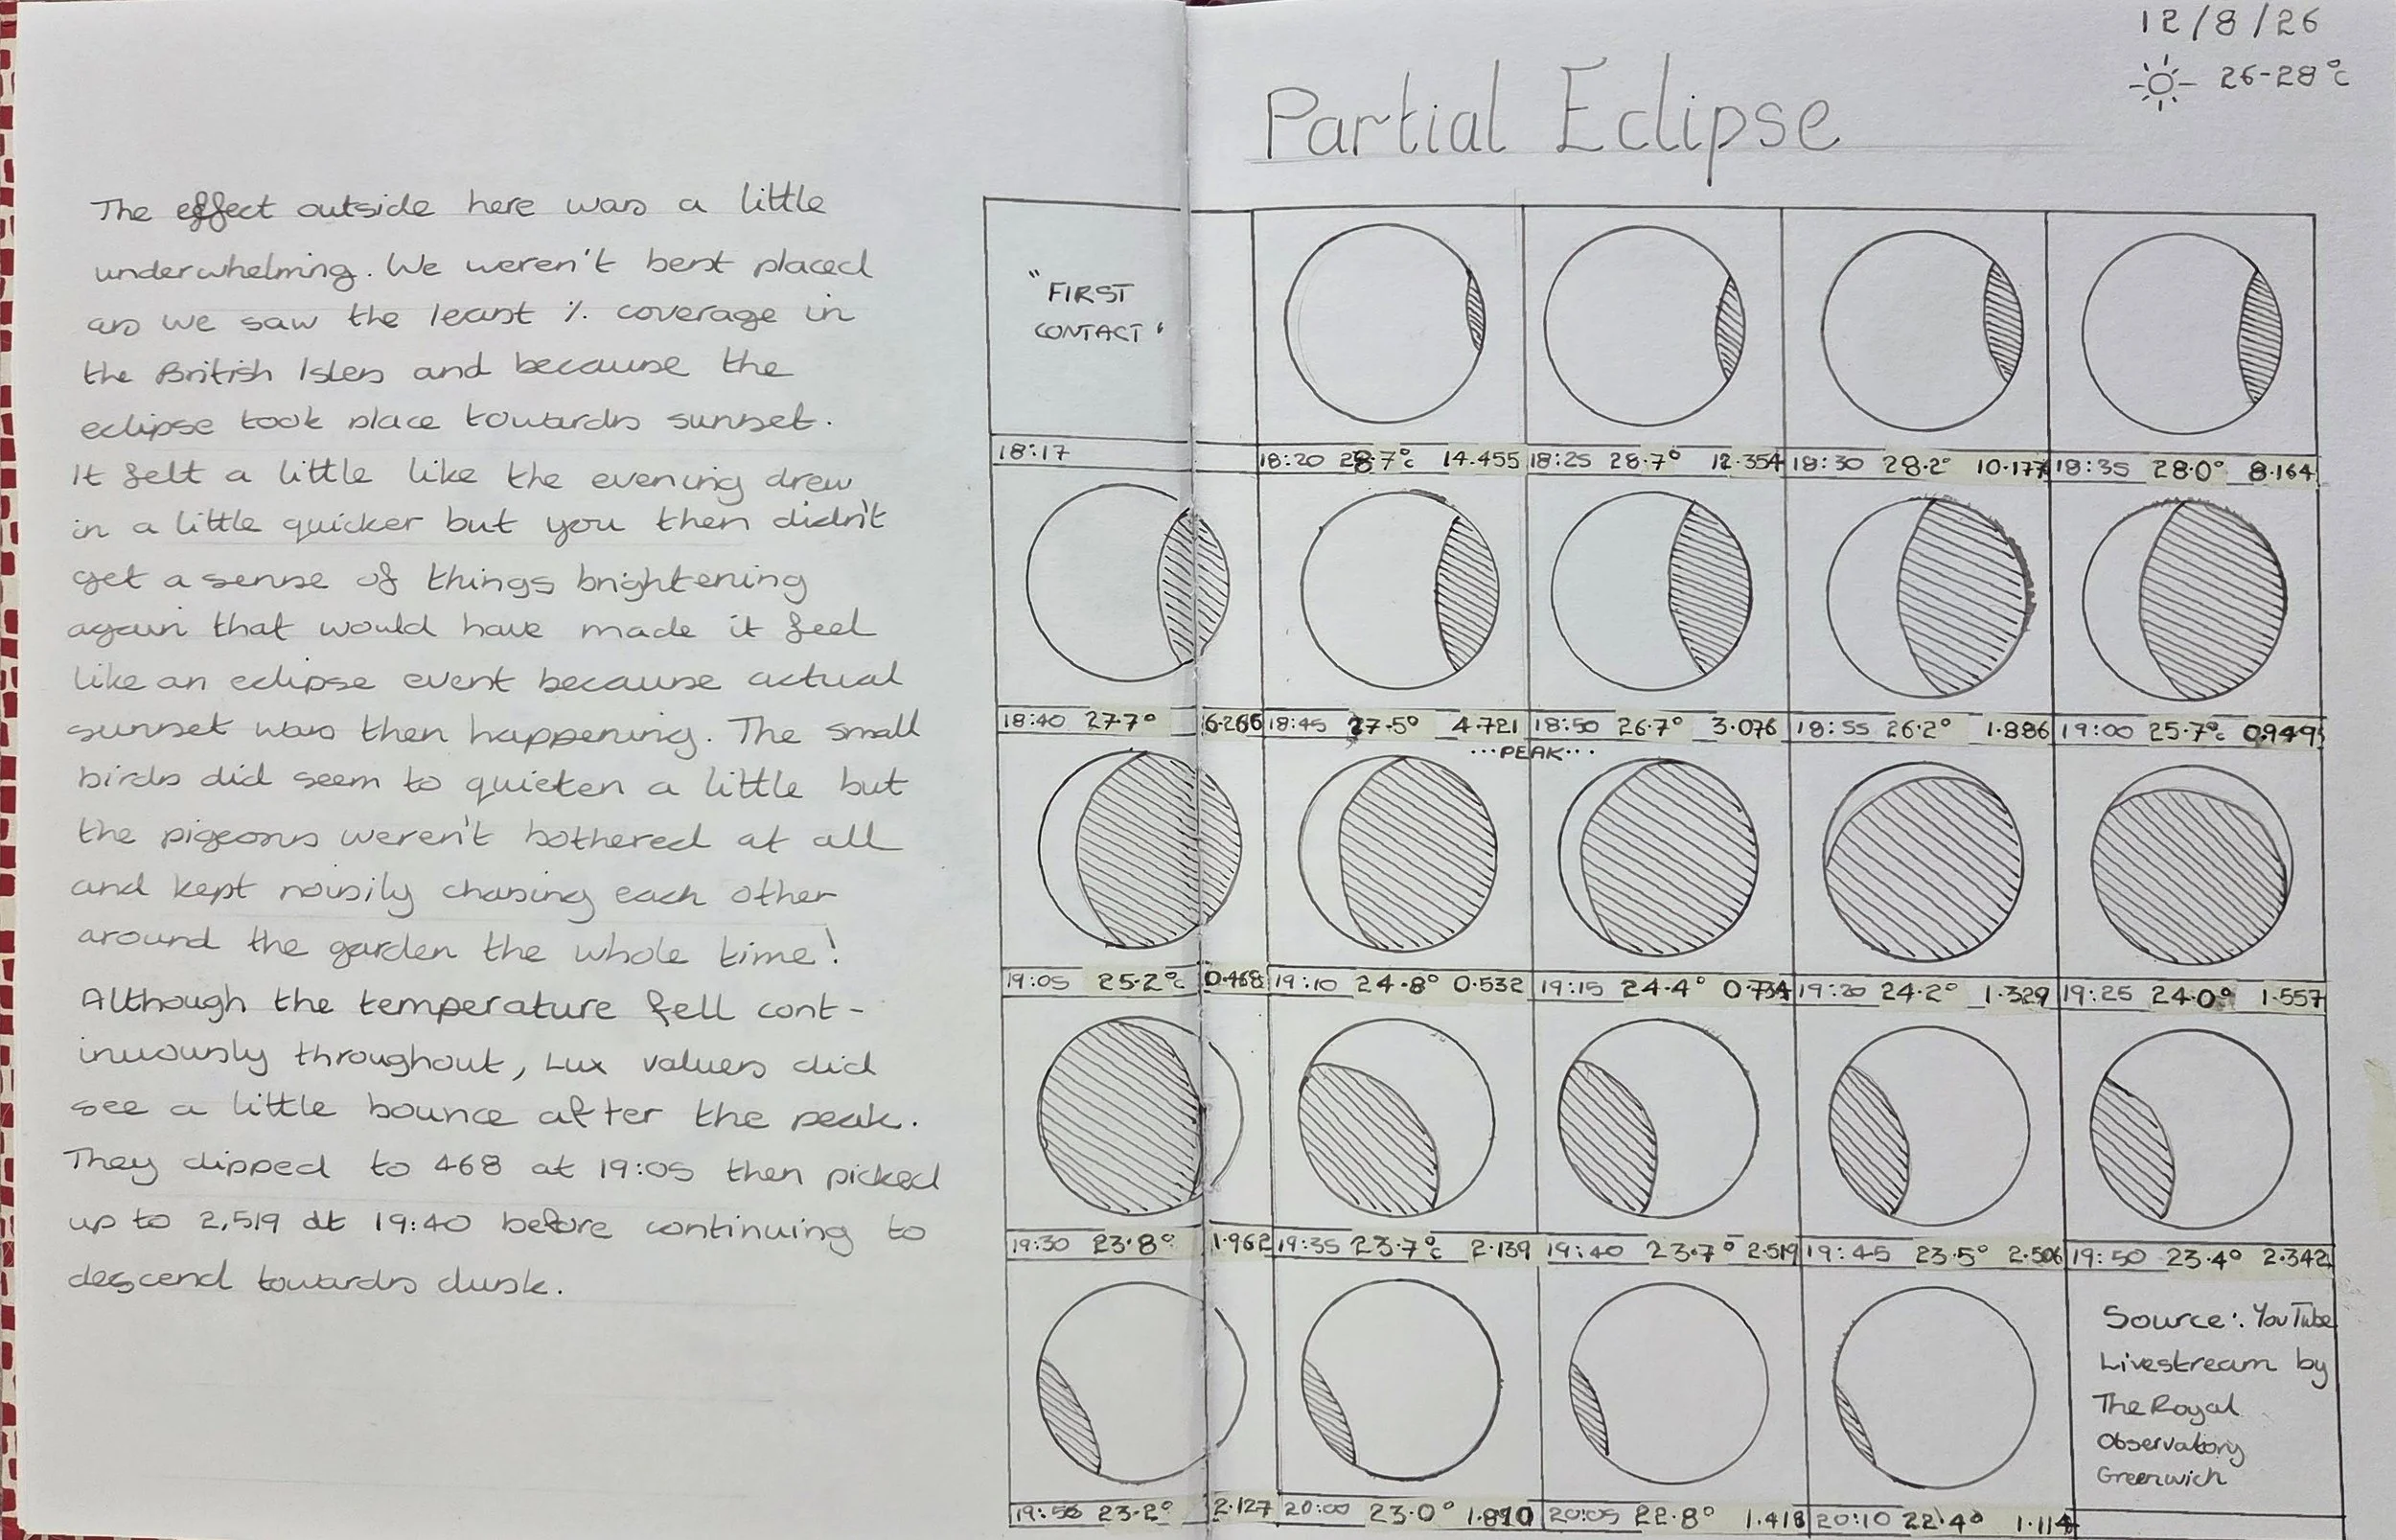 The effect outside here was a little
underwhelming. We weren't best placed
as we saw the least % coverage in
the British Isles and because the
eclipse took place towards sunset.
It felt a little like the evening drew
in a little quicker but you then didn't
get a sense of things brightening
again that would have made it feel
like an eclipse event because actual
sunset was then happening. The small
birds did seem to quieten a little but
the pigeons weren't bothered at all
and kept noisily chasing each other
around the garden the whole time!
Although the temperature fell cont-
inuously throughout, Lux values did
see a little bounce after the peak.
They dipped to 468 at 19:05 then picked
up to 2,519 at 19:40 before continuing to
descend towards dusk.
12/8/26
26-28°c
Partial Eclipse
"FIRST
CONTACT"
18:17 18:20 28.7°c 14.455 18:25 28.7° 12.354 18:30 28.2° 10.177 18:35 28.0° 8.164
18:40 27.7° 6.266 18:45 27.5° 4.721 18:50 26.7° 3.076 18:55 26.2° 1.886 19:00 25.7°c 0.949
...PEAK...
19:05 25.2°c 0.468 19:10 24.8° 0.532 19:15 24.4° 0.734 19:20 24.2° 1.329 19:25 24.0° 1.557
19:30 23.8° 1.962 19:35 23.7°c 2.139 19:40 23.7° 2.519 19:45 23.5° 2.506 19:50 23.4° 2.342
Source: YouTube
Livestream by
The Royal
Observatory
Greenwich
19:55 23.2° 2.127 20:00 23.0° 1.810 20:05 22.8° 1.418 20:10 22.4° 1.114